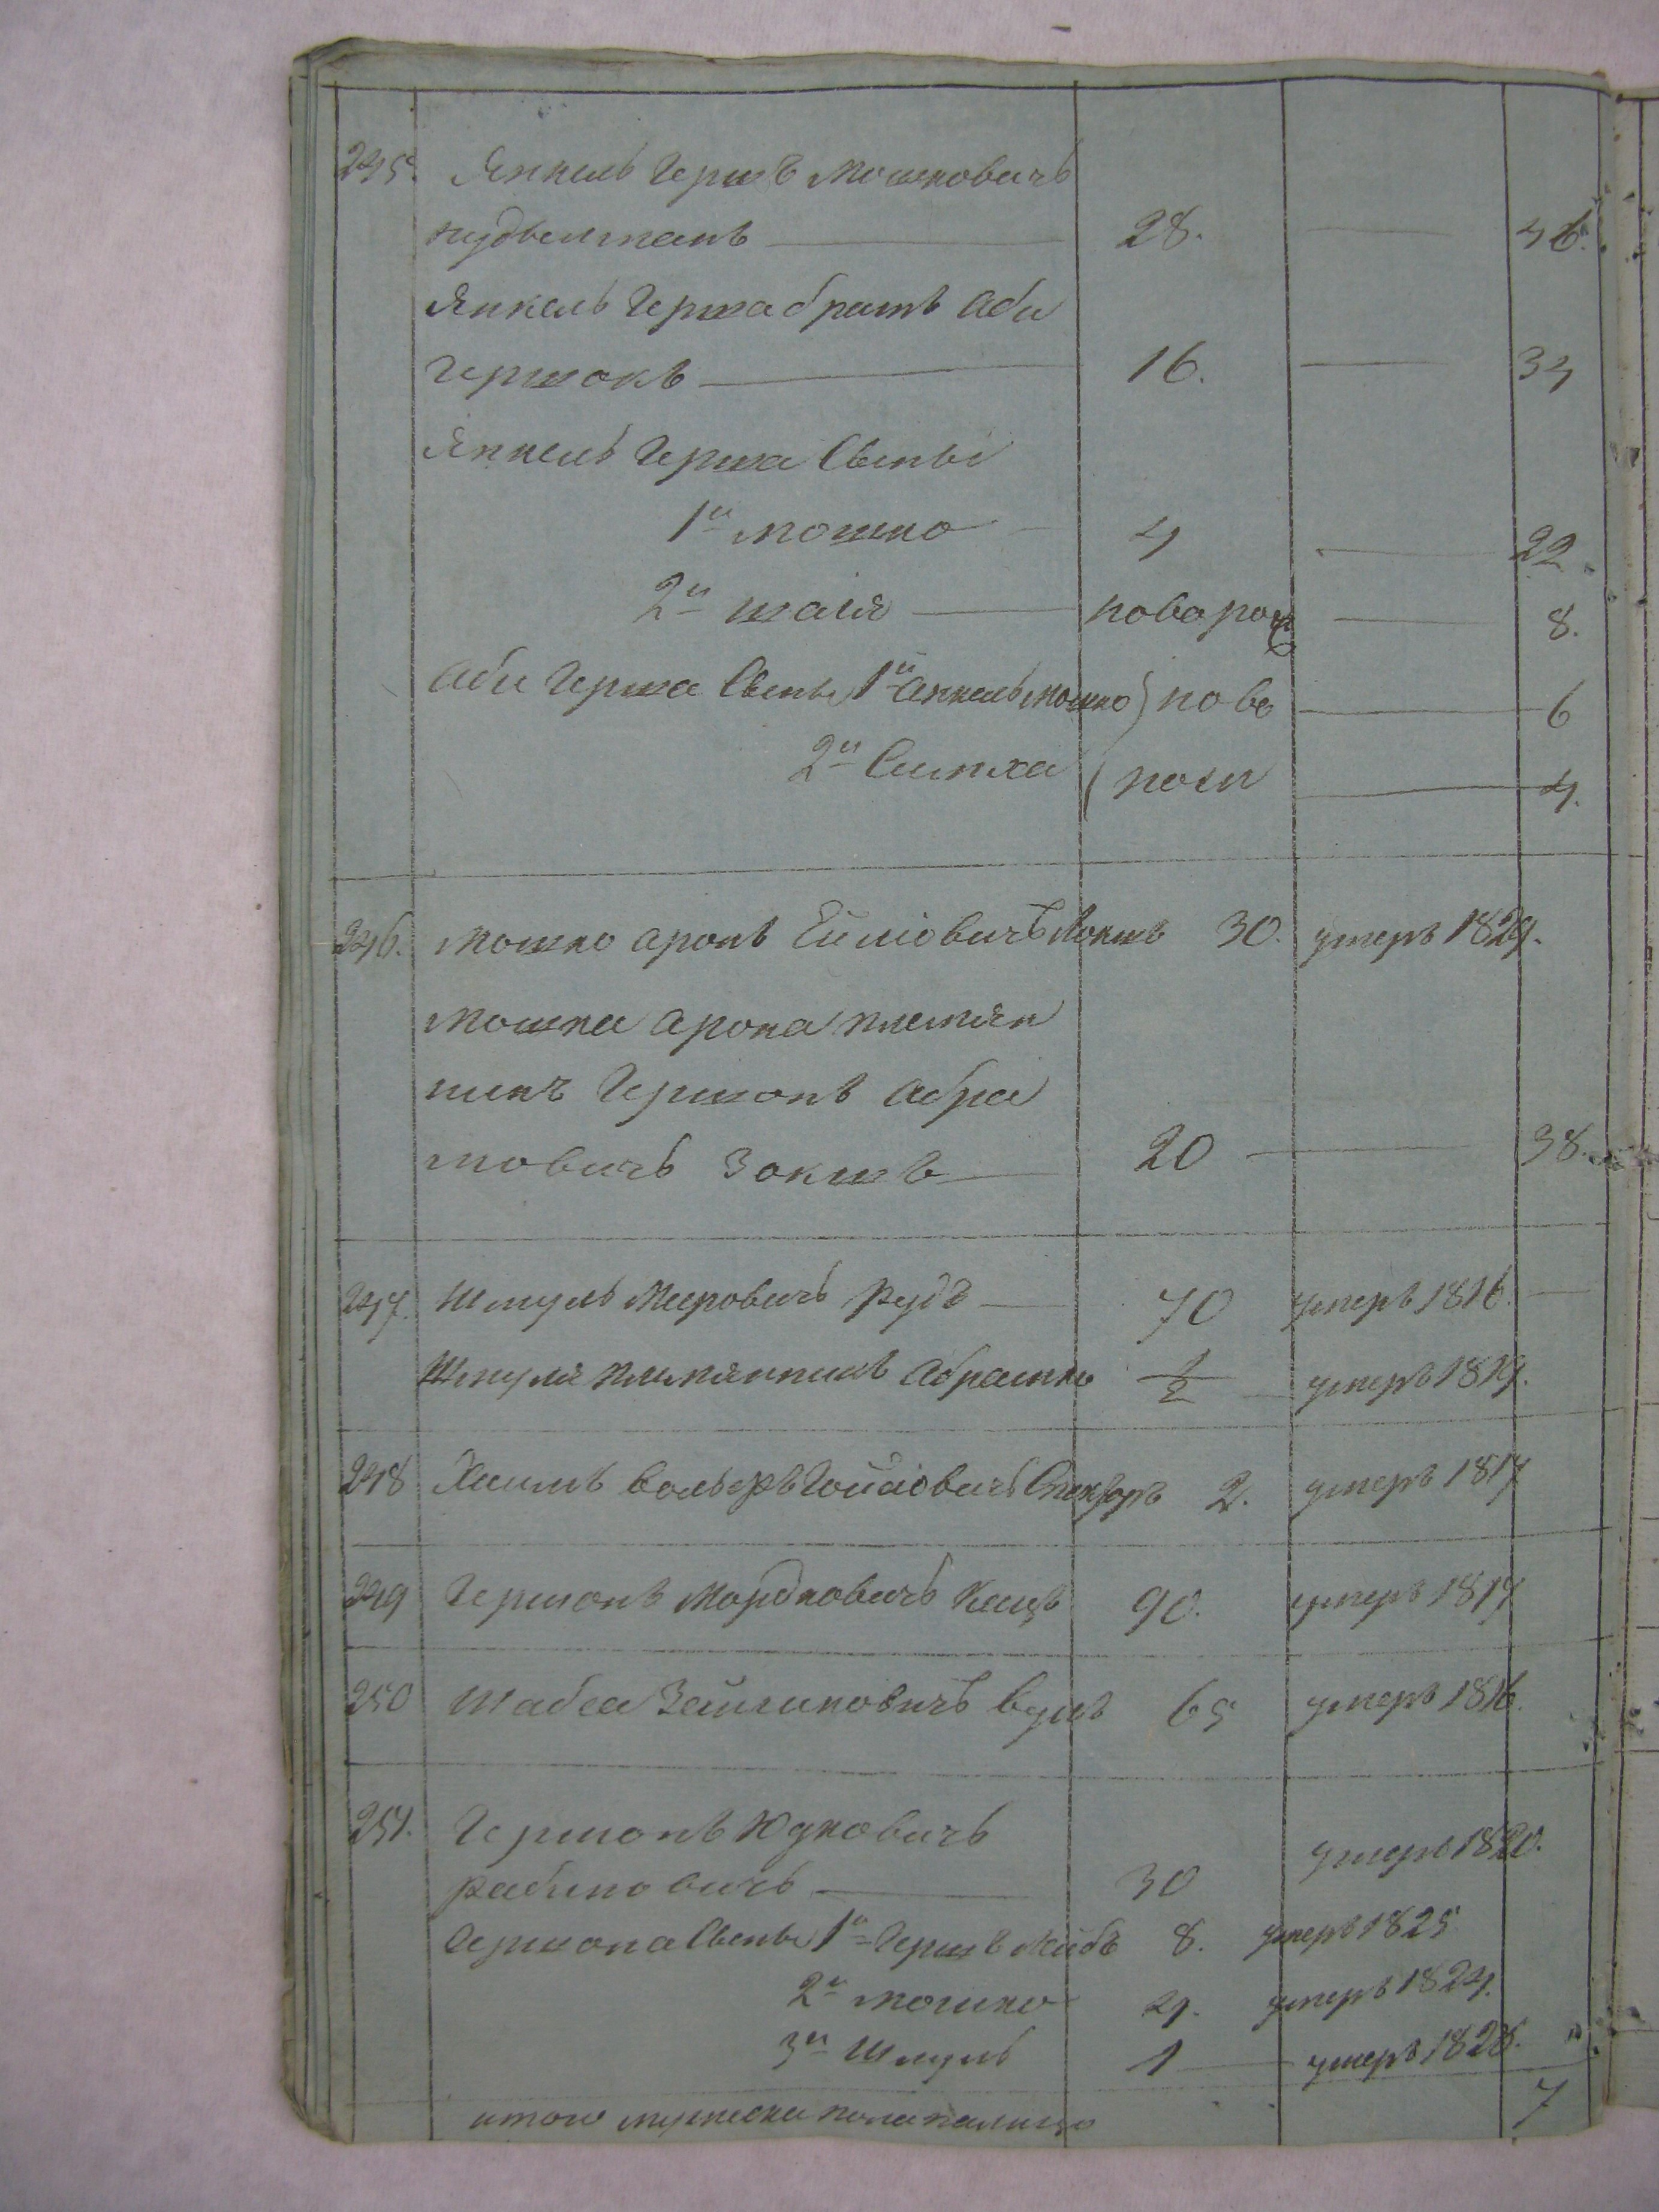 245. Янкель Гершъ Мошковичъ
нудвелманъ 28. 46.
Янкель Герша братъ Аби
Гершокъ 16. 34
Янкель Герша Сыны
1й Мошко 4 22.
2й шаія новорож 8.
Аби Герша Сыны 1й Янкель Мошко ново 6
2й Симха рожд 4.
246. Мошко Аронъ Ейліовичъ Зокшъ 30. умеръ 1829.
Мошка Арона племян
никъ Гершонъ Абра
мовичъ Зокшъ 20 38.
247. Шмуль Меровичъ Рудъ 70 умеръ 1816.
Шмуля племянникъ Абрамко 1/2 умеръ 1819.
248 Хаимъ Вольфъ Спекторъ 2. умеръ 1817
249 Гершонъ Мордковичъ Кацъ 90. умеръ 1817
250 Шабса Зейликовичъ 65 умеръ 1816.
251. Гершонъ Юдковичъ
Рабиновичъ 30 умеръ 1820.
Гершона Сыны 1й Гершъ Лейбъ 8. умеръ 1825
2й Мошко 4. умеръ 1824.
3й Шмуль 1 умеръ 1828.
итого мужеска пола налицо 7